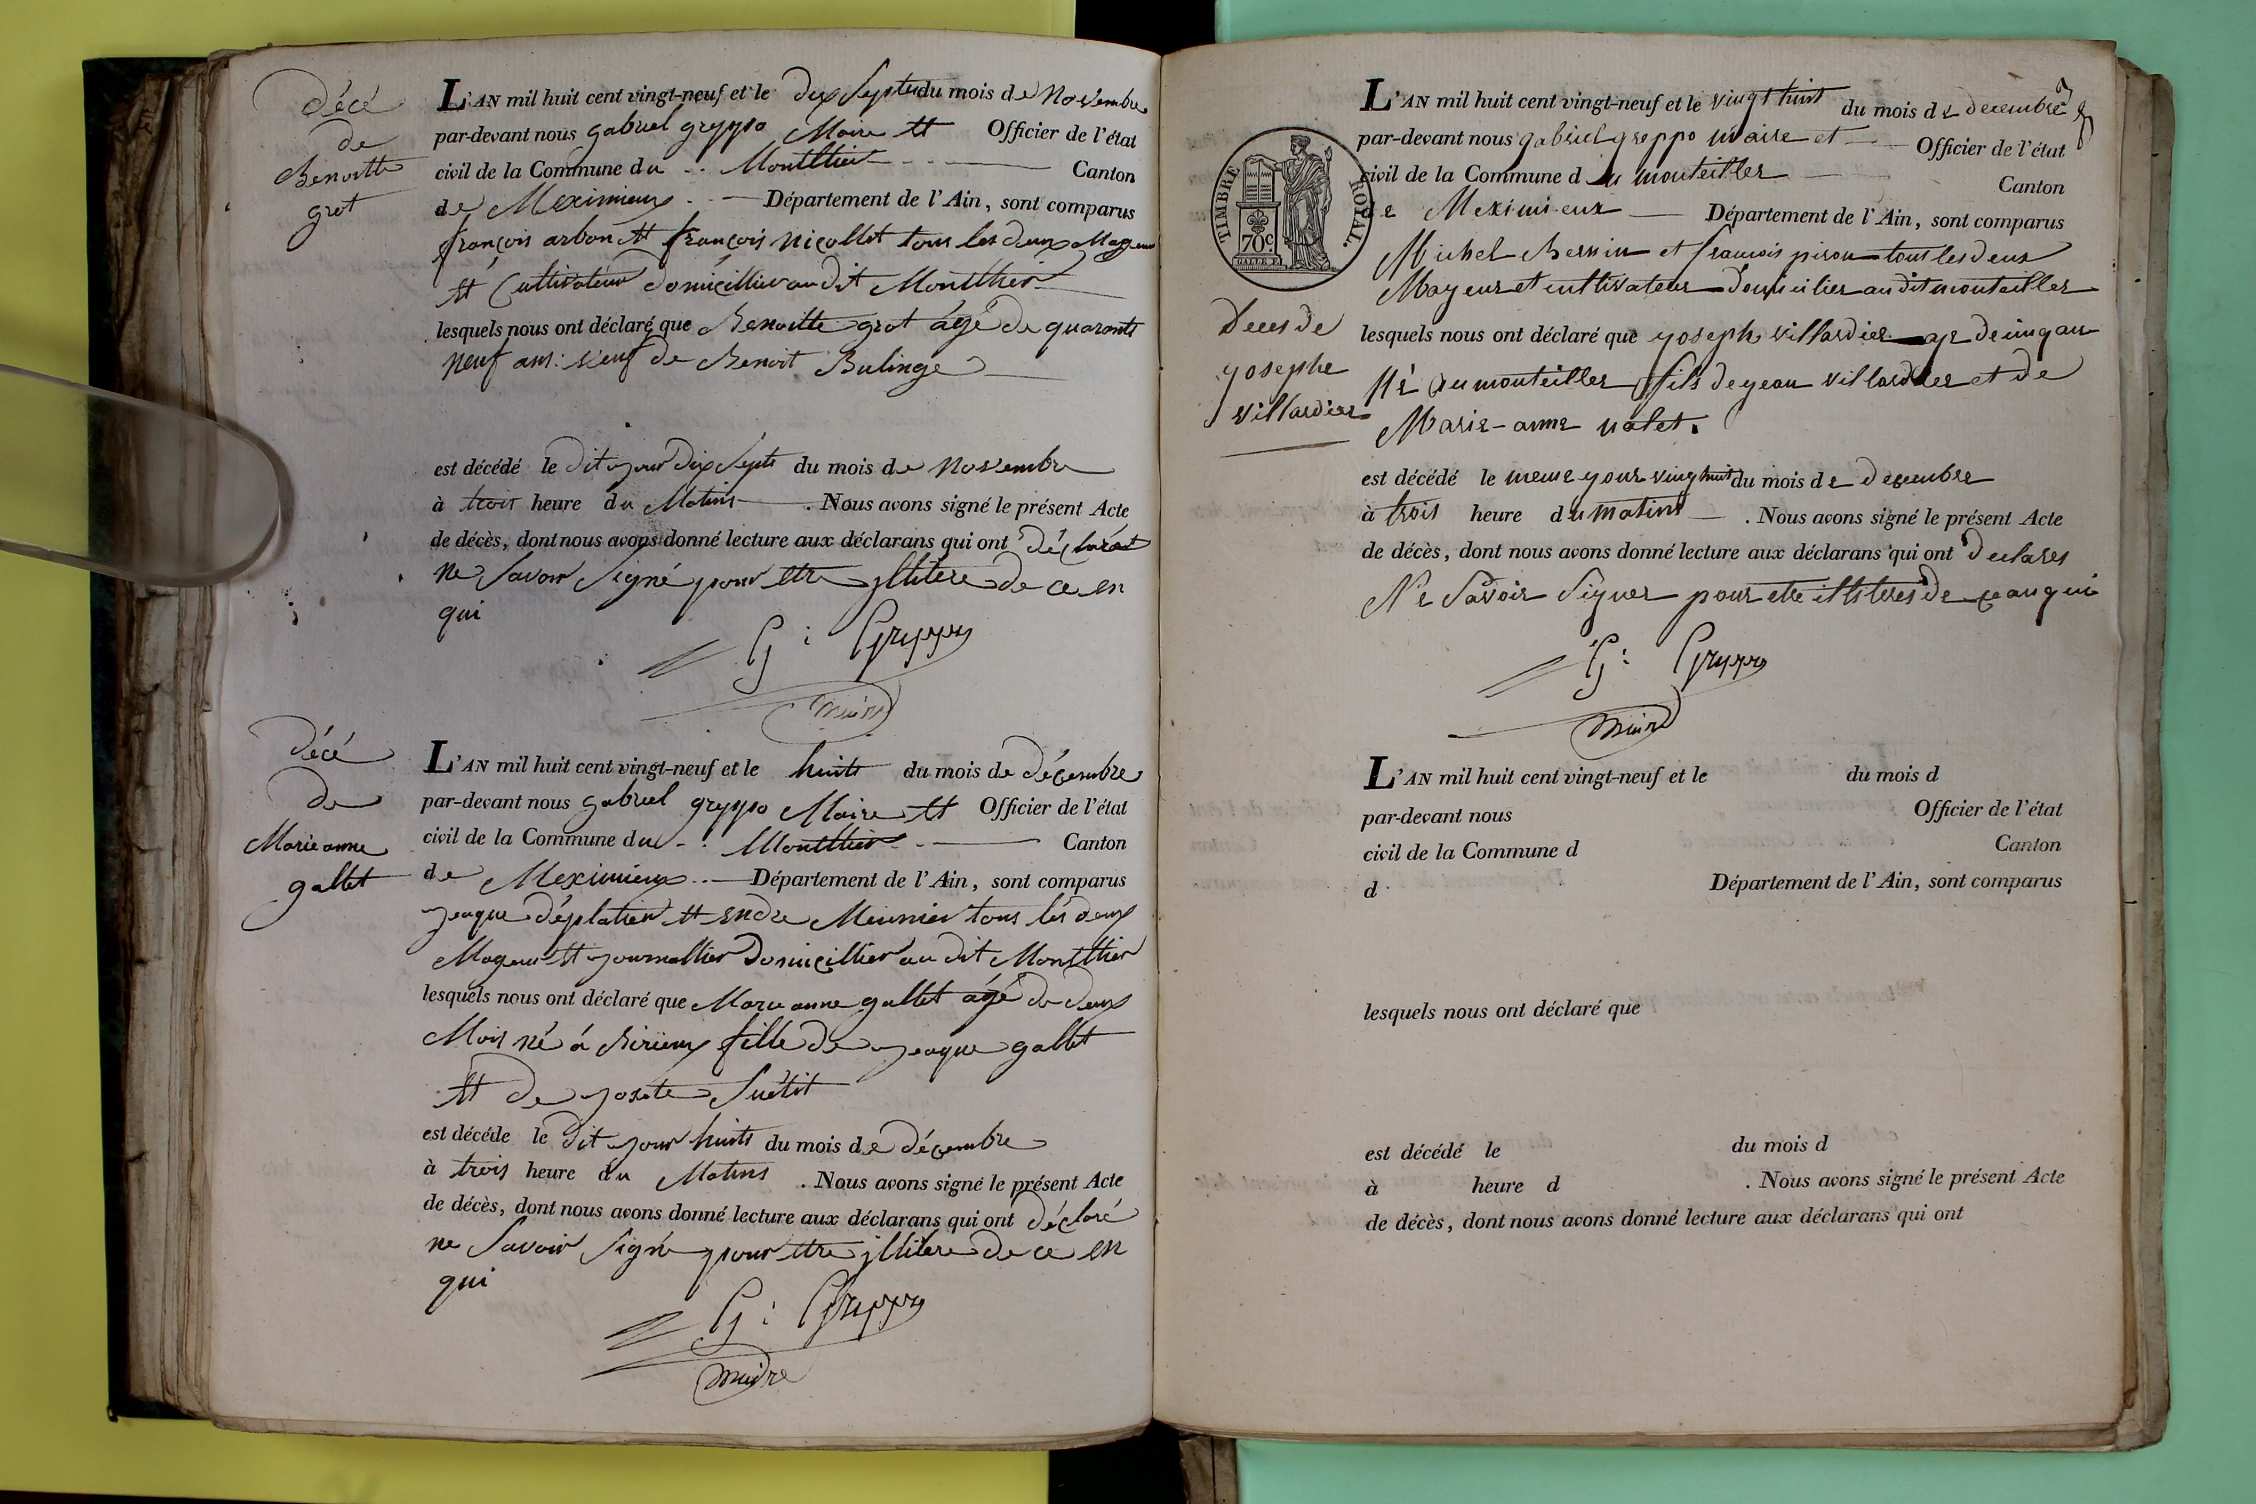 décé
de
Benoitte
grot
L'AN mil huit cent vingt-neuf et le dix septs du mois de Novembre
par-devant nous gabriel greppo Maire et Officier de l'état
civil de la Commune du Monttlier Canton
de Meximieux Département de l'Ain, sont comparus
françois arbon et françois nicollet tous les deux Mageur
et Cultivateur domicillier au dit Monttlier
lesquels nous ont déclaré que Benoitte grot agé de quarante
neuf ans veuf de Benoit Bulinge
est décédé le dit jour dix septs du mois de Novembre
à trois heure du Matins . Nous avons signé le présent Acte
de décès, dont nous avons donné lecture aux déclarans qui ont déclarét
ne savoir signé pour etre illitere de ce en
qui
G : Greppo
maire
décé
de
Marie anne
gallet
L'AN mil huit cent vingt-neuf et le huits du mois de décembre
par-devant nous gabriel greppo Maire et Officier de l'état
civil de la Commune du Monttlier Canton
de Meximieux Département de l'Ain, sont comparus
jeaque déplatier et endre Meunier tous lés deux
Mageur et journallier domicillier au dit Monttlier
lesquels nous ont déclaré que Marie anne gallet agé de deux
Mois né á Birieux fille de jeaque gallet
et de josete Suétit
est décéde le dit jour huits du mois de décembre
à trois heure du Matins . Nous avons signé le présent Acte
de décès, dont nous avons donné lecture aux déclarans qui ont déclaré
ne savoir signé pour etre illitere de ce en
qui
G : Greppo
maire
TIMBRE ROYAL.
70c.
L'AN mil huit cent vingt-neuf et le vingt huit du mois de decembre
par-devant nous gabriel greppo maire et Officier de l'état
civil de la Commune du monteiller Canton
de Meximieux Département de l'Ain, sont comparus
Michel Bernin et francois piron tout les deux
Mayeur et cultivateur Domicilier au dit monteiller
Deces de
yosephe
villardier
lesquels nous ont déclaré que yoseph villardier age de cinq an
Né du monteiller fils de yean villardier et de
Marie-anne nalet.
est décédé le meme your ving huit du mois de decembre
à trois heure du matins . Nous avons signé le présent Acte
de décès, dont nous avons donné lecture aux déclarans qui ont declares
Ne Savoir Signer pour etre illiteres de ce an qui
G : Greppo
maire
L'AN mil huit cent vingt-neuf et le du mois d
par-devant nous Officier de l'état
civil de la Commune d Canton
d Département de l'Ain, sont comparus
lesquels nous ont déclaré que
est décédé le du mois d
à heure d . Nous avons signé le présent Acte
de décès, dont nous avons donné lecture aux déclarans qui ont